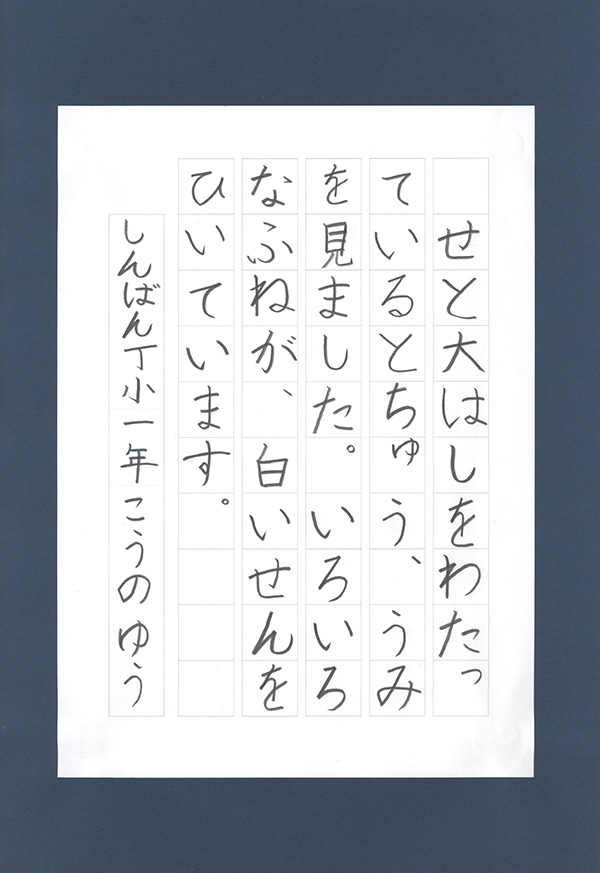 せと大はしをわたっ
ているとちゅう、うみ
を見ました。いろいろ
なふねが、白いせんを
ひいています。
しんばん丁小一年こうのゆう